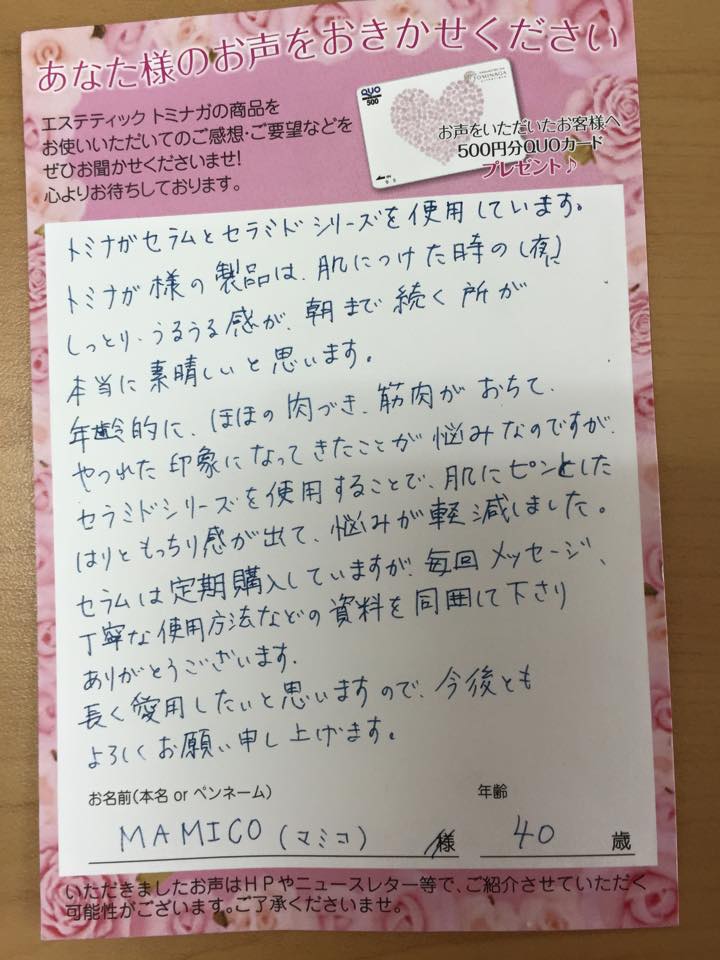 あなた様のお声をおきかせください
エステティック トミナガの商品を
お使いいただいてのご感想・ご要望などを
ぜひお聞かせくださいませ!
心よりお待ちしております。
QUO
500
TOMINAGA
お声をいただいたお客様へ
500円分QUOカード
プレゼント♪
トミナガセラムとセラミドシリーズを使用しています。
トミナガ様の製品は、肌につけた時の(夜に)
しっとり・うるうる感が、朝まで続く所が
本当に素晴しいと思います。
年齢的に、ほほの肉づき、筋肉がおちて、
やつれた印象になってきたことが悩みなのですが、
セラミドシリーズを使用することで、肌にピンとした
はりともっちり感が出て、悩みが軽減しました。
セラムは定期購入していますが、毎回メッセージ、
丁寧な使用方法などの資料を同囲して下さり
ありがとうございます。
長く愛用したいと思いますので、今後とも
よろしくお願い申し上げます。
お名前(本名 or ペンネーム)
年齢
MAMICO (マミコ) 様
40 歳
いただきましたお声はHPやニュースレター等で、ご紹介させていただく
可能性がございます。ご了承くださいませ。